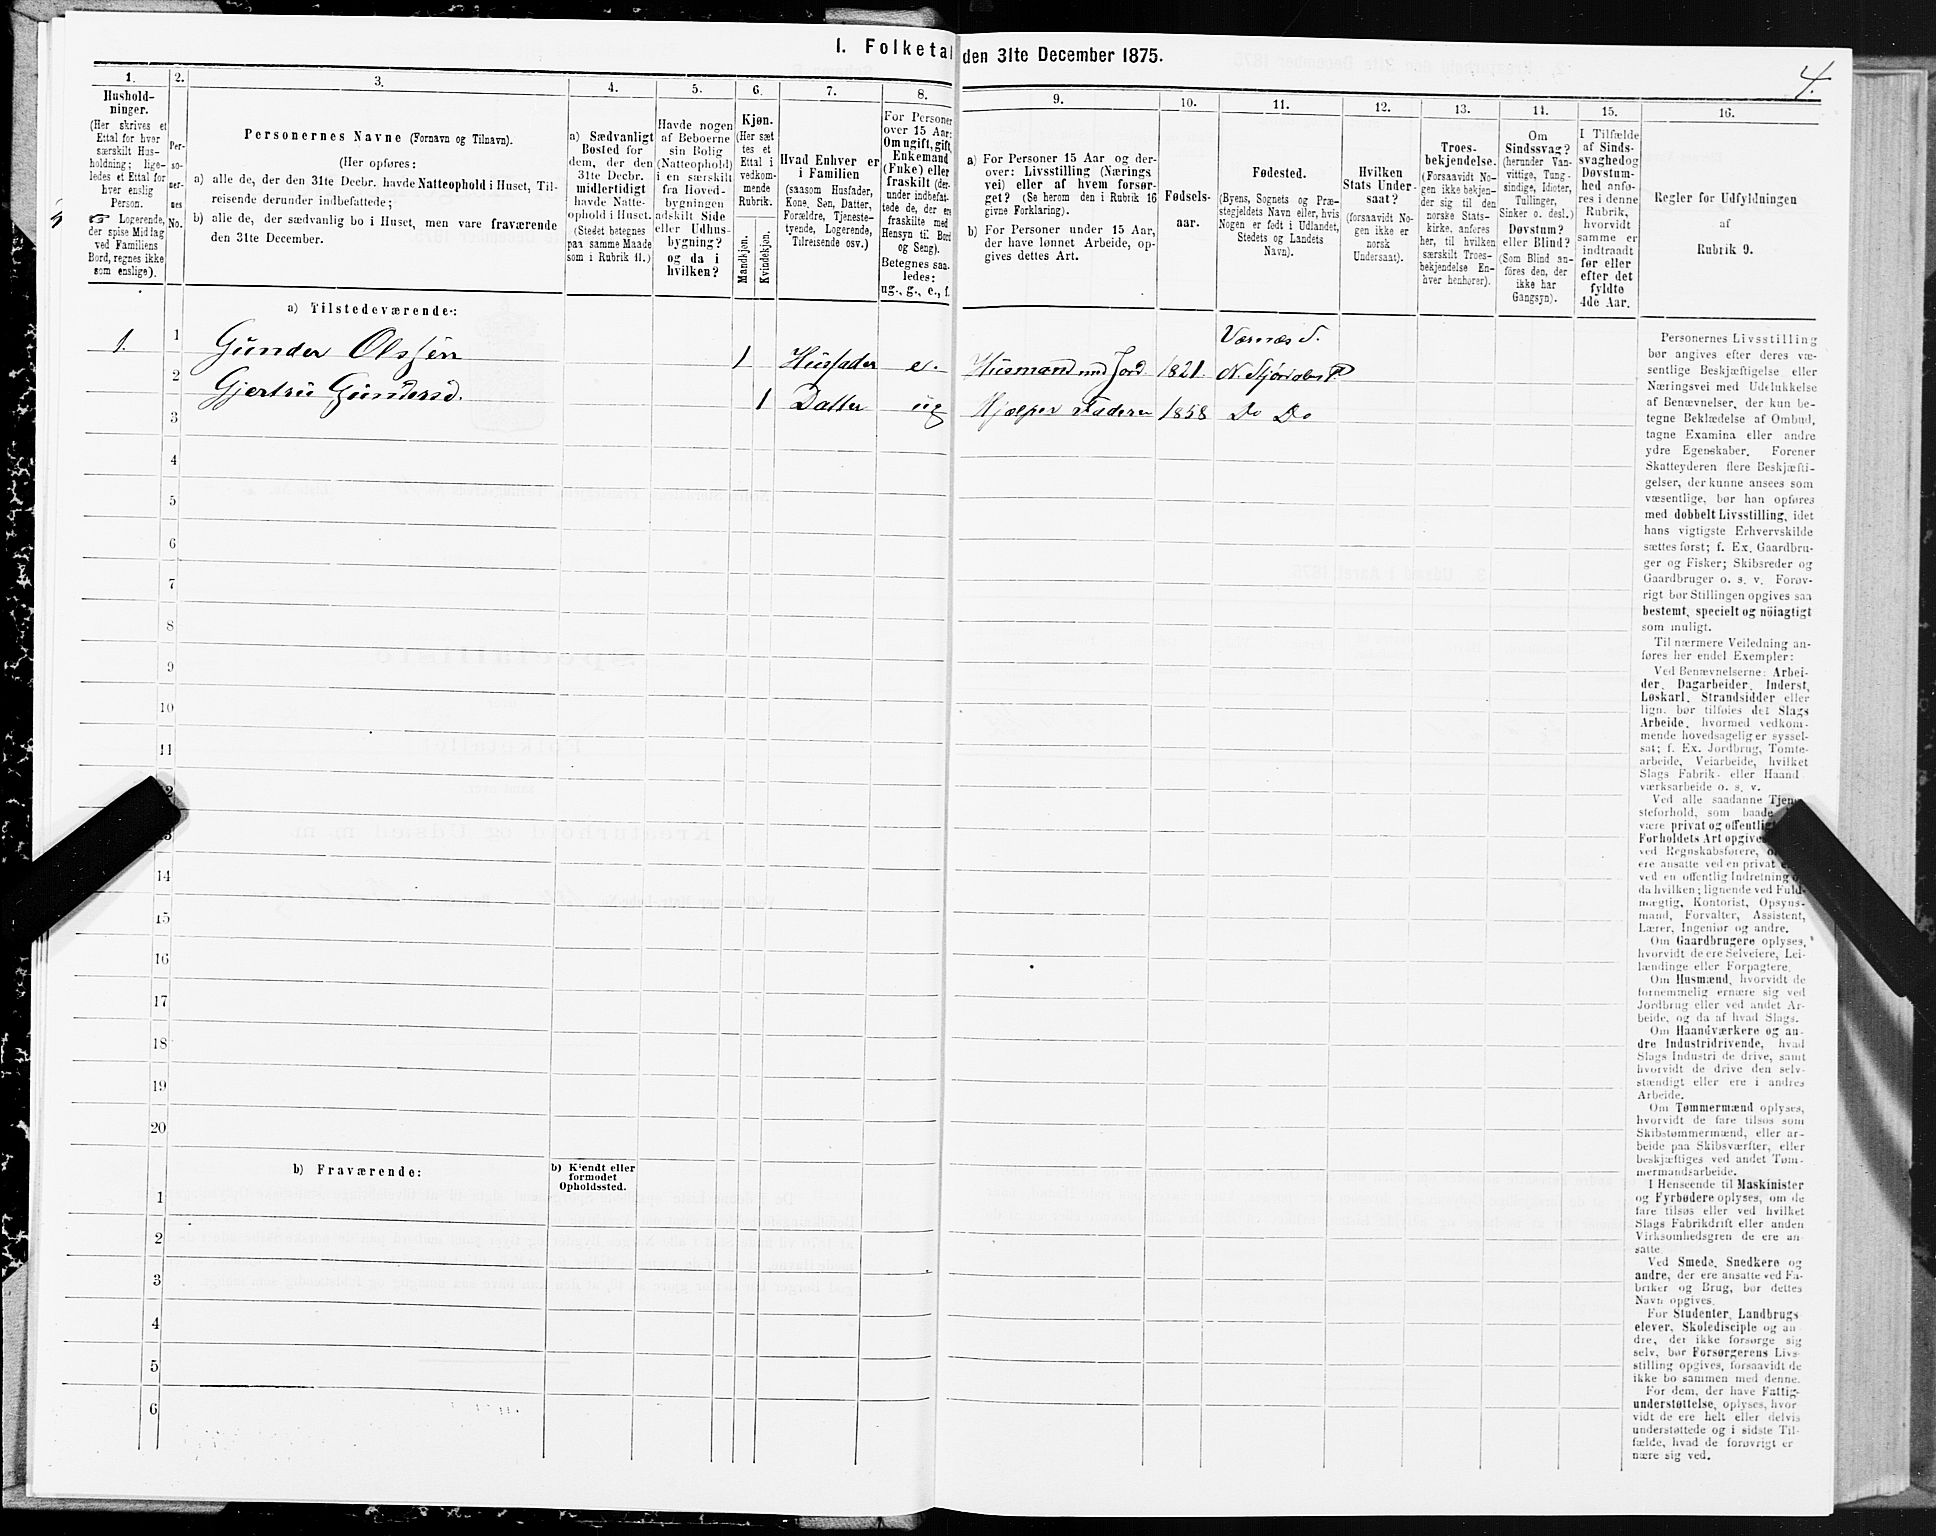 1. Folketal den 31te December 1875.
4.
1.
Husholdninger.
(Her skrives et
Ettal for hver
særskilt Husholdning; ligeledes
et Ettal for
hver enslig
Person.
☞ Logerende,
der spise Middag
ved Familiens
Bord, regnes ikke
som enslige).
2.
Personernes
No.
3.
Personernes Navne (Fornavn og Tilnavn).
(Her opføres:
a) alle de, der den 31te Decbr. havde Natteophold i Huset, Tilreisende
derunder indbefattede;
b) alle de, der sædvanlig bo i Huset, men vare fraværende
den 31te December.
4.
a) Sædvanligt
Bosted for
dem, der den
31te Decbr.
midlertidigt
havde Natteophold
i Huset.
(Stedet betegnes
paa samme Maade
som i Rubrik 11.)
5.
Havde nogen
af Beboerne
sin Bolig
(Natteophold)
i en særskilt
fra Hovedbygningen
adskilt Side
eller Udhusbygning?
og da i
hvilken?
6.
Kjøn.
(Her sættes
et
Ettal i
vedkommende
Rubrik.
Mandkjøn.
Kvindekjøn.
7.
Hvad Enhver er
i Familien
(saasom Husfader,
Kone, Søn, Datter,
Forældre, Tjenestetyende,
Logerende,
Tilreisende osv.)
8.
For Personer
over 15 Aar:
Om ugift, gift,
Enkemand
(Enke) eller
fraskilt (derunder
indbefattede
de, der ere
fraskilte med
Hensyn til Bord
og Seng).
Betegnes saaledes:
ug., g., e., f.
9.
a) For Personer 15 Aar og derover:
Livsstilling (Næringsvei)
eller af hvem forsørget?
(Se herom den i Rubrik 16
givne Forklaring).
b) For Personer under 15 Aar,
der have lønnet Arbeide, opgives
dettes Art.
10.
Fødselsaar.
11.
Fødested.
(Byens, Sognets og Præstegjeldets
Navn eller, hvis
Nogen er født i Udlandet,
Stedets og Landets
Navn).
12.
Hvilken
Stats Undersaat?
(forsaavidt Nogen
ikke er
norsk
Undersaat).
13.
Troesbekjendelse.
(Forsaavidt Nogen
ikke bekjender
sig til den
norske Statskirke,
anføres
her, til hvilken
særskilt Troesbekjendelse
Enhver
henhører).
14.
Om
Sindssvag?
(herunder Vanvittige,
Tungsindige,
Idioter,
Tullinger,
Sinker o. desl.)
Døvstum?
eller Blind?
(Som Blind anføres
den, der
ikke har
Gangsyn).
15.
I Tilfælde
af Sindssvaghed
og
Døvstumhed
anføres
i denne
Rubrik,
hvorvidt
samme er
indtraadt
før eller
efter det
fyldte
4de Aar.
16.
Regler for Udfyldningen
af
Rubrik 9.
a) Tilstedeværende:
1. 1 Gunder Olssen 1 Husfader e. Husmand med Jord 1821 Værnæs S. N. Stjørdalens P.
2 Gjertru Gundersd. 1 Datter ug Hjælper Faderen 1858 Do Do
3
4
5
6
7
8
9
10
11
2
3
14
15
16
17
18
19
20
b) Fraværende:
b) Kjendt eller
formodet
Opholdssted.
1
2
3
4
5
6
Personernes Livsstilling
bør angives efter deres væsentlige
Beskjæftigelse eller
Næringsvei med Udelukkelse
af Benævnelser, der kun betegne
Beklædelse af Ombud,
tagne Examina eller andre
ydre Egenskaber. Forener
Skatteyderen flere Beskjæftigelser,
der kunne ansees som
væsentlige, bør han opføres
med dobbelt Livsstilling, idet
hans vigtigste Erhvervskilde
sættes først; f. Ex. Gaardbruger
og Fisker; Skibsreder og
Gaardbruger o. s. v. Forøvrigt
bør Stillingen opgives saa
bestemt, specielt og nöiagtigt
som muligt.
Til nærmere Veiledning anføres
her endel Exempler:
Ved Benævnelserne: Arbeider,
Dagarbeider, Inderst,
Løskarl, Strandsidder eller
lign. bør tilføies det Slags
Arbeide, hvormed vedkommende
hovedsagelig er sysselsat;
f. Ex. Jordbrug, Tomtearbeide,
Veiarbeide, hvilket
Slags Fabrik- eller Haandværksarbeide
o. s. v.
Ved alle saadanne Tjenesteforhold,
som baade
være privat og offentlig
Forholdets Art opgives
ved Regnskabsførere,
ere ansatte ved en privat
ved en offentlig Indretning
da hvilken; lignende ved Fuldmægtig,
Kontorist, Opsynsmand,
Forvalter, Assistent,
Lærer, Ingeniør og andre.
Om Gaardbrugere oplyses,
hvorvidt de ere Selveiere, Leilændinge
eller Forpagtere.
Om Husmænd, hvorvidt de
fornemmelig ernære sig ved
Jordbrug eller ved andet Arbeide,
og da af hvad Slags.
Om Haandværkere og andre
Industridrivende, hvad
Slags Industri de drive, samt
hvorvidt de drive den selvstændigt
eller ere i andres
Arbeide.
Om Tømmermænd oplyses,
hvorvidt de fare tilsøs som
Skibstømmermænd, eller arbeide
paa Skibsværfter, eller
beskjæftiges ved andet Tømmermandsarbeide.
I Henseende til Maskinister
og Fyrbødere oplyses, om de
fare tilsøs eller ved hvilket
Slags Fabrikdrift eller anden
Virksomhedsgren de ere ansatte.
Ved Smede, Snedkere og
andre, der ere ansatte ved Fabriker
og Brug, bør dettes
Navn opgives.
For Studenter, Landbrugselever,
Skoledisciple og andre,
der ikke forsørge sig
selv, bør Forsørgerens Livsstilling
opgives, forsaavidt de
ikke bo sammen med denne.
For dem, der have Fattigunderstøttelse,
oplyses, hvorvidt
de ere helt eller delvis
understøttede og i sidste Tilfælde,
hvad de forøvrigt er
nære sig ved.